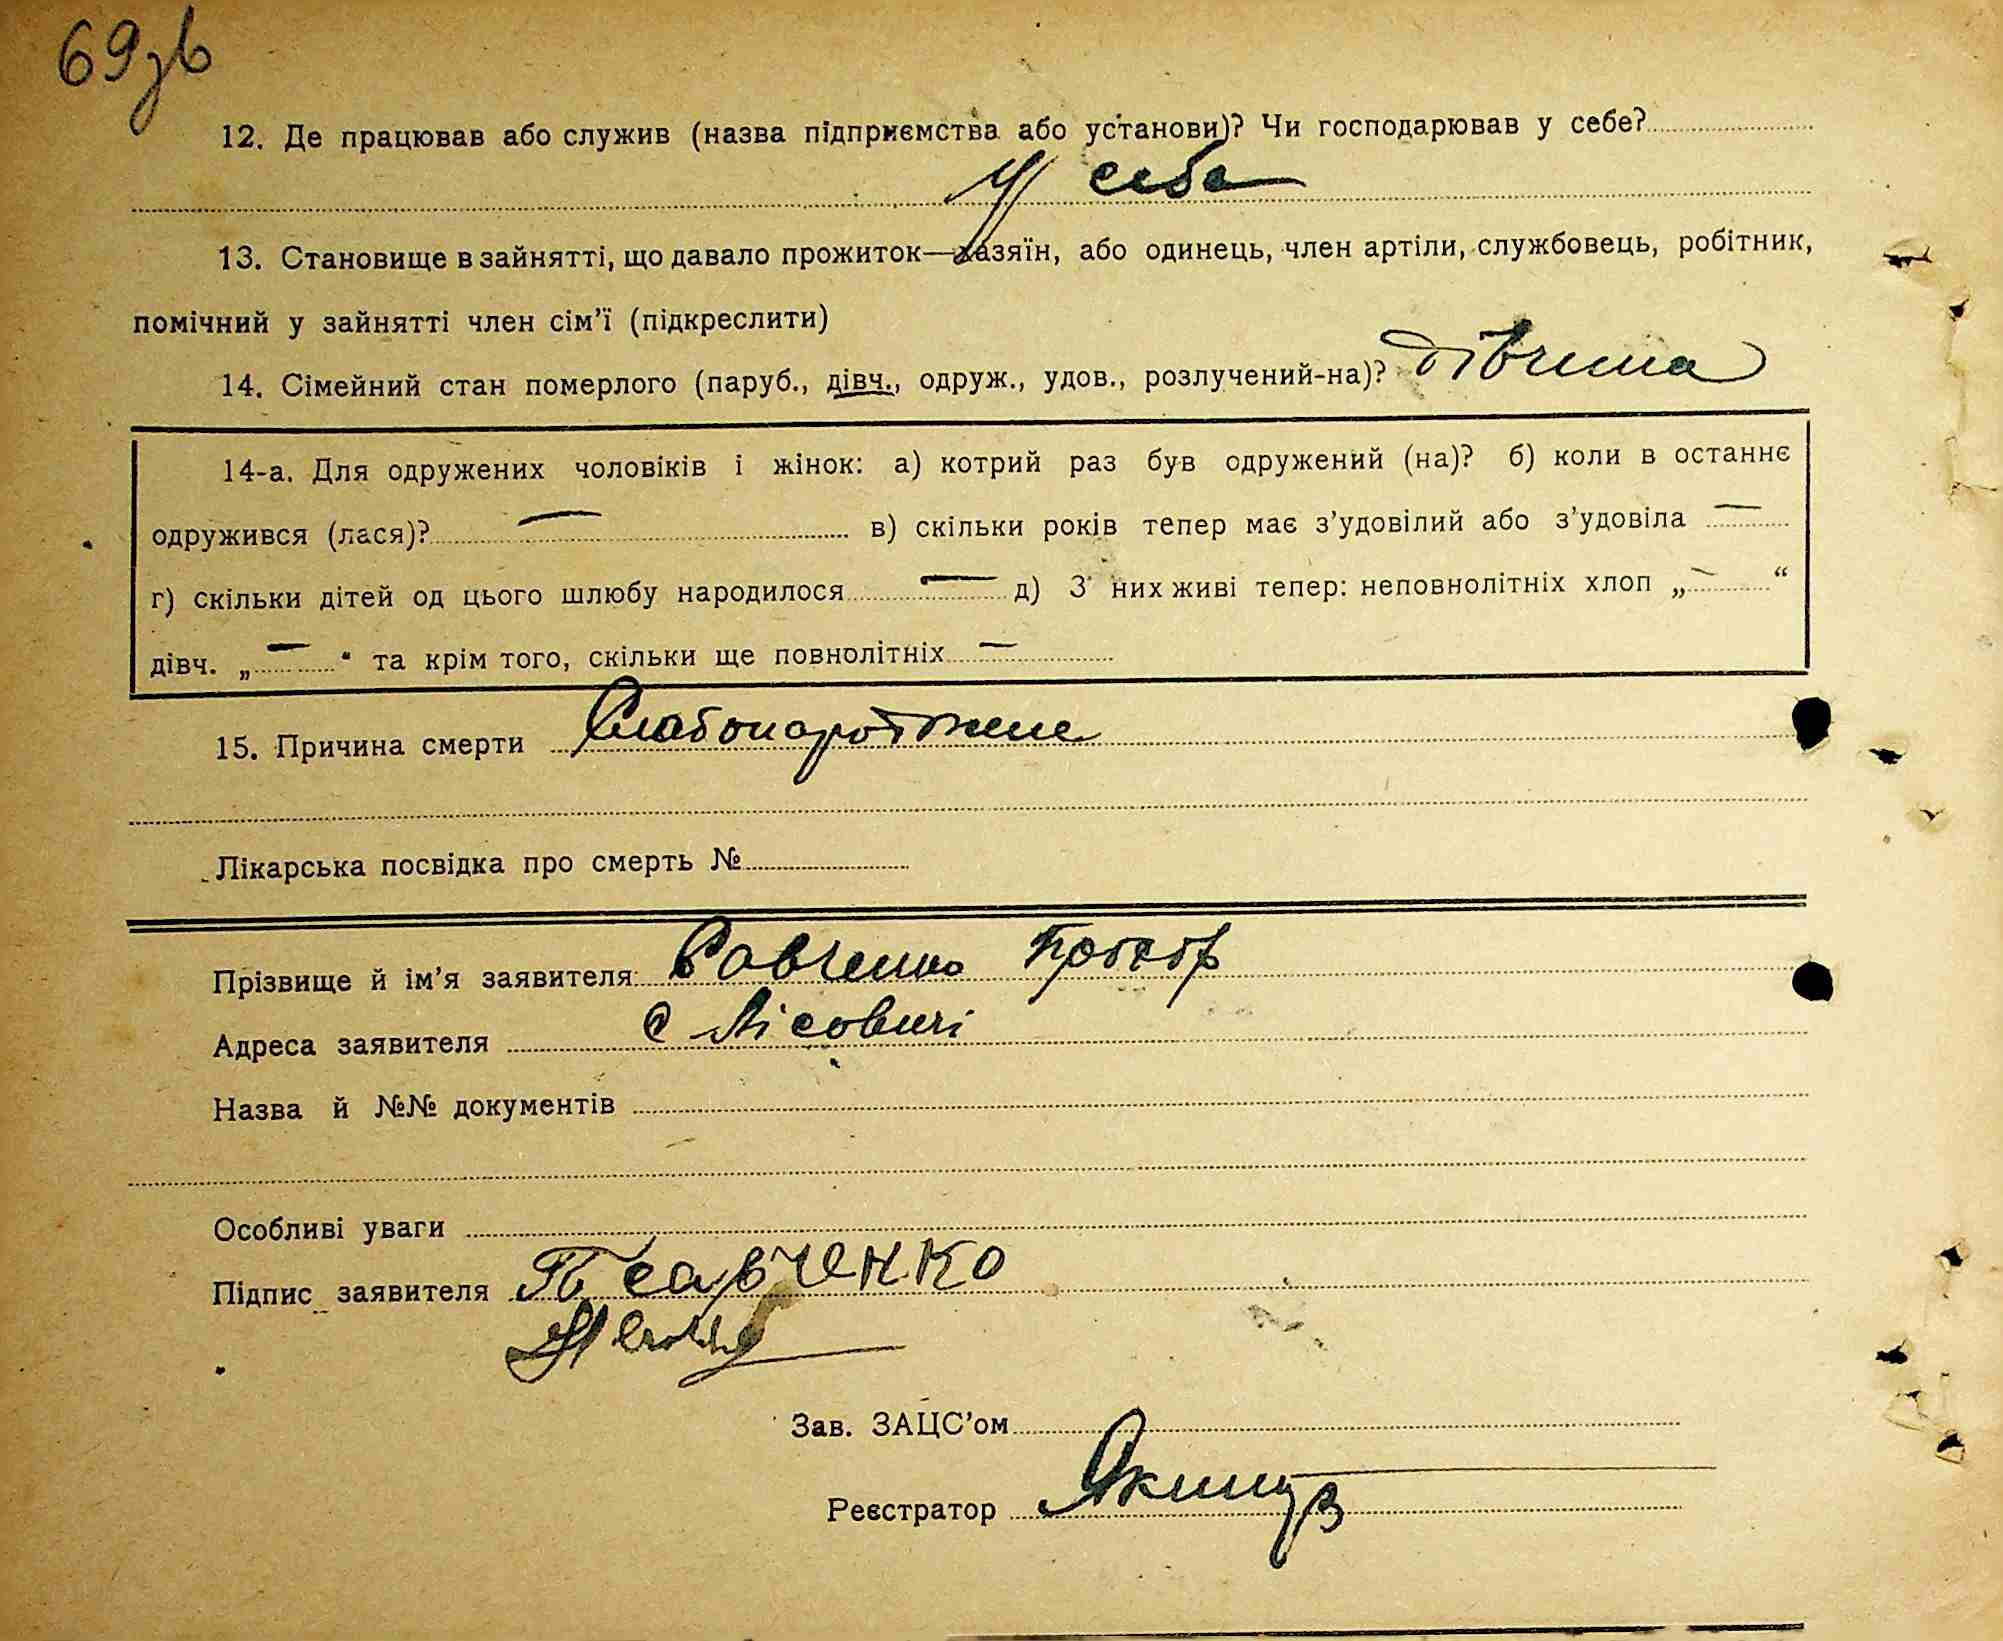 69зв
12. Де працював або служив (назва підприємства або установи)? Чи господарював у себе?
У себе
13. Становище в зайнятті, що давало прожиток—хазяїн, або одинець, член артіли, службовець, робітник,
помічний у зайнятті член сім’ї (підкреслити)
14. Сімейний стан померлого (паруб., дівч., одруж., удов., розлучений-на)? дівчина
14-а. Для одружених чоловіків і жінок: а) котрий раз був одружений (на)? б) коли в останнє
одружився (лася)? — в) скільки років тепер має з’удовілий або з’удовіла —
г) скільки дітей од цього шлюбу народилося — д) З них живі тепер: неповнолітніх хлоп „—“
дівч. „—“ та крім того, скільки ще повнолітніх —
15. Причина смерти Слабонарожжене
Лікарська посвідка про смерть №
Прізвище й ім’я заявителя: Савченко
Адреса заявителя с Лісовичі
Назва й №№ документів
Особливі уваги
Підпис заявителя П Савченко
Зав. ЗАЦС’ом
Реєстратор